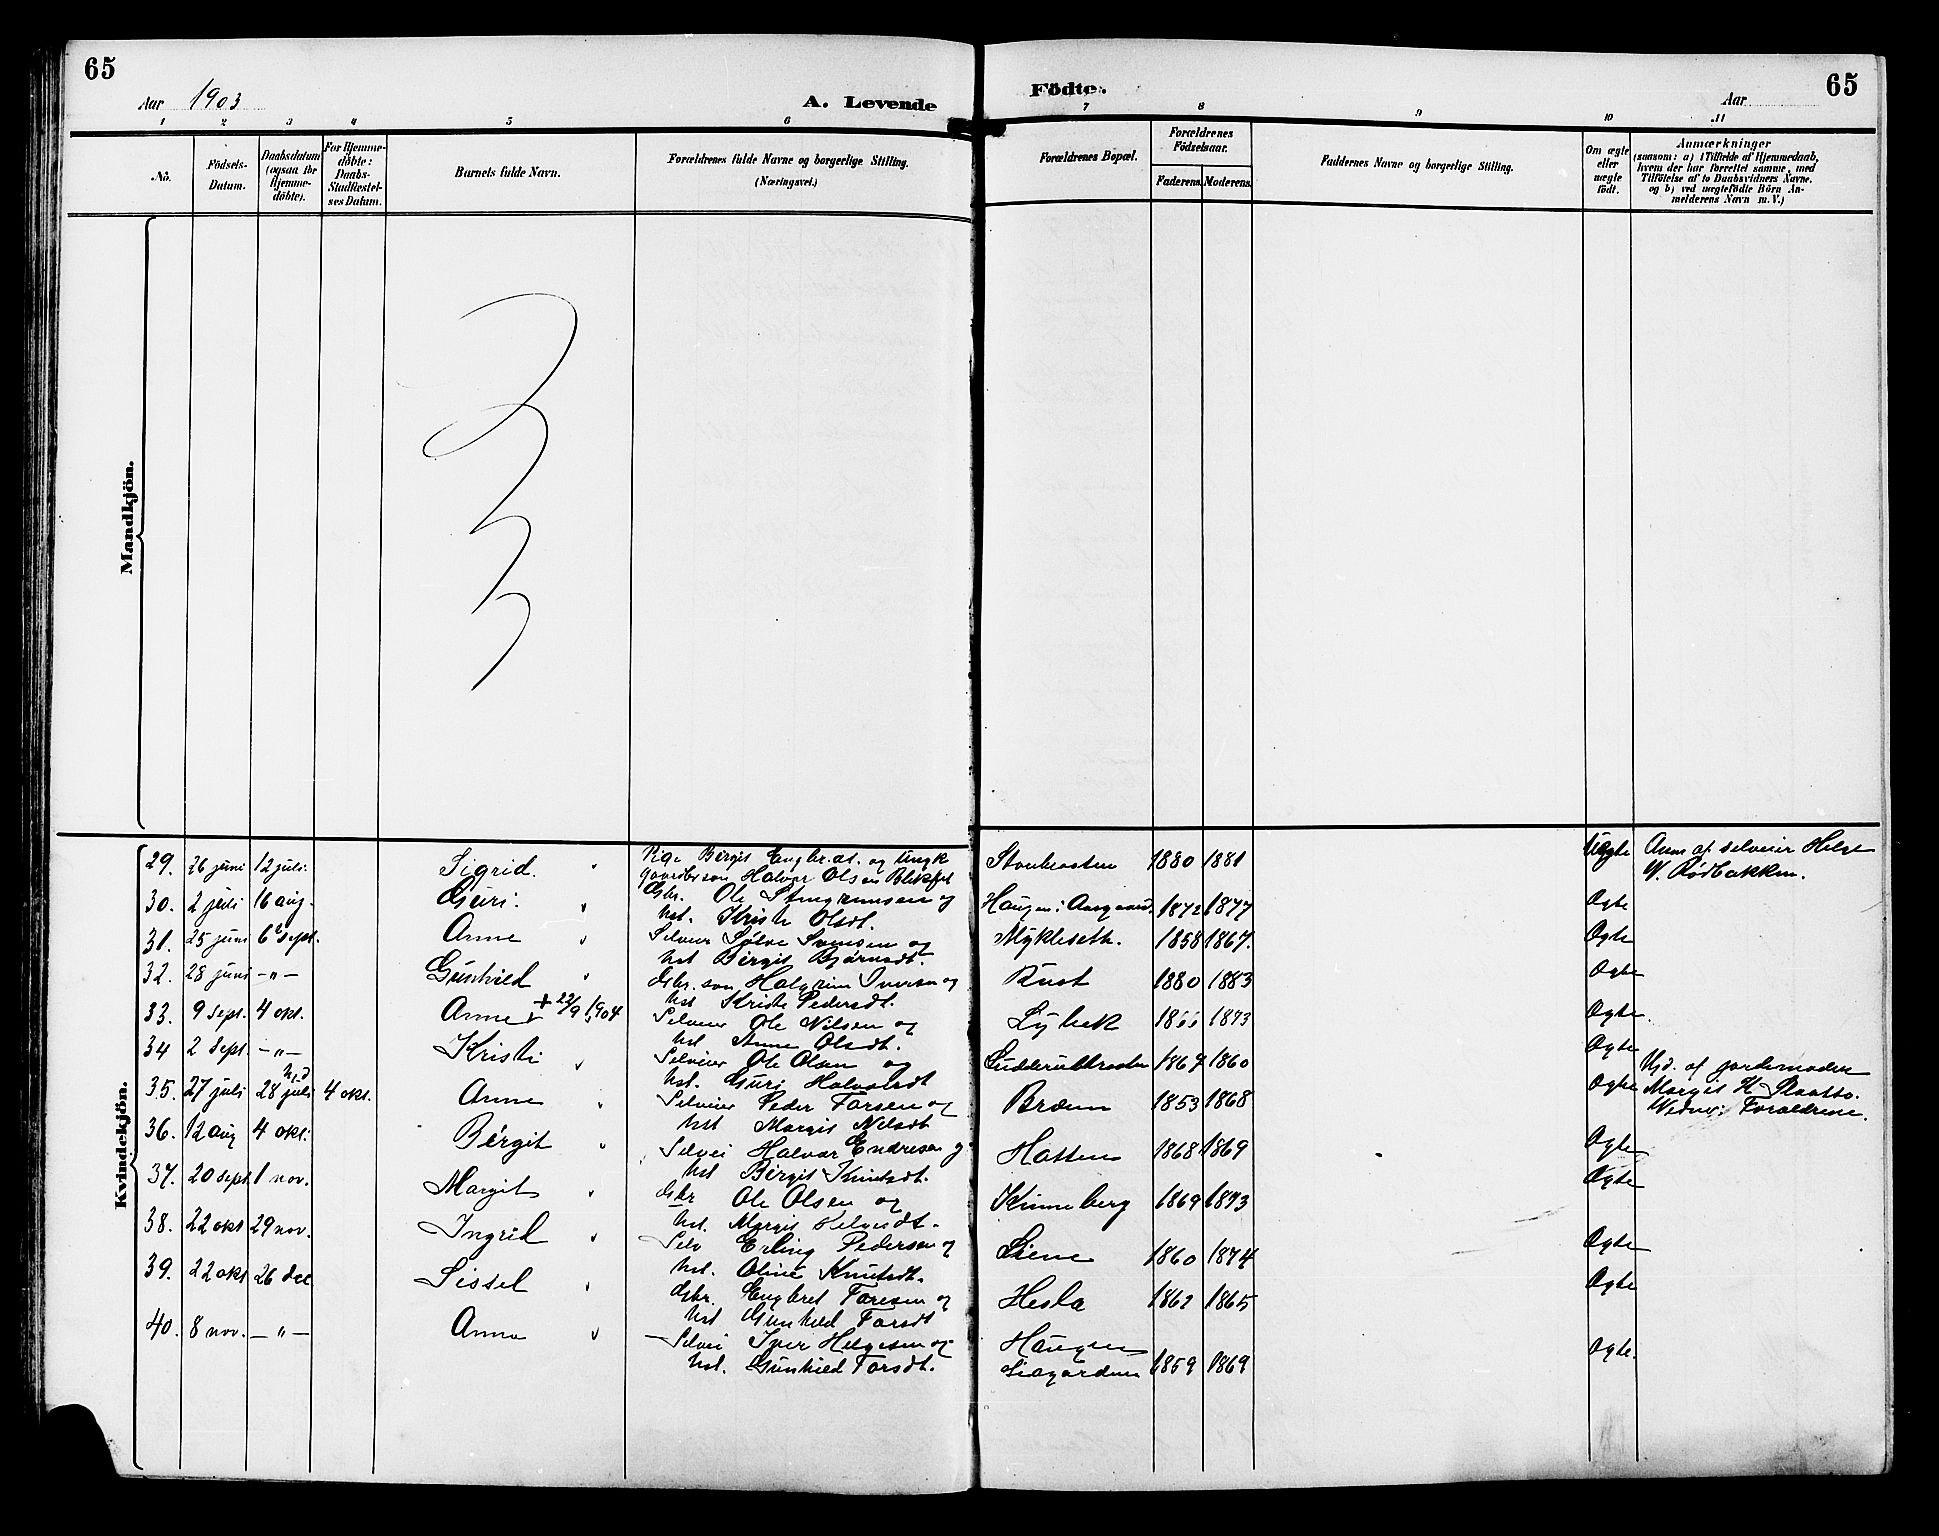 65
Aar 1903
A. Levende
Födte.
Aar
65
1 2 3 4 5 6 7 8 9 10 11
No. Födsels-Datum. Daabsdatum (ogsaa for Hjemmedöbte). For Hjemmedöbte: Daabs-Stadfæstelses Datum. Barnets fulde Navn. Forældrenes fulde Navne og borgerlige Stilling. (Næringsvei.) Forældrenes Bopæl. Forældrenes Födselsaar. Faderens. Moderens. Faddernes Navne og borgerlige Stilling. Om ægte eller uægte födt. Anmærkninger (saasom: a) i Tilfælde af Hjemmedaab, hvem der har forrettet samme, med Tilföielse af to Daabsvidners Navne, og b) ved uægtefödte Börn Anmelderens Navn m. V.)
Mandkjön.
Kvindekjön.
29. 26 juni 12 juli. Sigrid. Pige Birgit og ungk 1880 1881 Uægte Anm af selveier Helge
gaardbr son Halvor Olsen V. Rødbakken.
30. 2 juli 16 aug. Guri. Gbr. Ole og Haugen i Aargaard. 1872 1877 Ægte
hst. Kristi Olsdt.
31. 25 juni 6 sept. Anne Selveier Sølve Svensen og Mykleseth. 1858 1867. Ægte
hst Birgit Bjørnsdt.
32. 28 juni -"- Gunhild Gbr. son Halgrim Iversen og Rust 1880 1883 Ægte
hst Kristi Pedersdt.
33. 9 sept. 4 okt. Anne + 22/9 1904 Selveier Ole Nilsen og Lybek 1866 1873 Ægte.
hst. Anne Olsdt.
34 2 sept. -"- Kristi Selveier Ole Olsen og 1867 1860 Ægte
hst. Guri
35. 27 juli hjd 28 juli 4 okt. Anne Selveier Peder Torsen og Bræin 1853 1868 Ægte Hjd. af jordemoder
hst Margit Nilsdt Margit H
Vidner: Forældrene.
36. 12 aug 4 okt. Birgit Selvei Halvor Endresen og Hatten 1868 1869 Ægte
hst Birgit Knutsdt.
37. 20 sept. 1 nov. Margit Gbr Ole Olsen og Kinneberg 1869 1873 Ægte
hst. Margit
38. 22 okt 29 nov. Ingrid Selv Erling Pedersen og Liene 1860 1874 Ægte
hst. Oline Knutsdt.
39. 22 okt 26 dec Sissel Gbr. Engbret Toresen og Hesla 1862 1865 Ægte
hst Gunhild Torsdt
40. 8 nov. -"- Anne Selvei Iver Helgesen og Haugen Ægte.
hst. Gunhild Torsdt. Liagarden 1859 1869